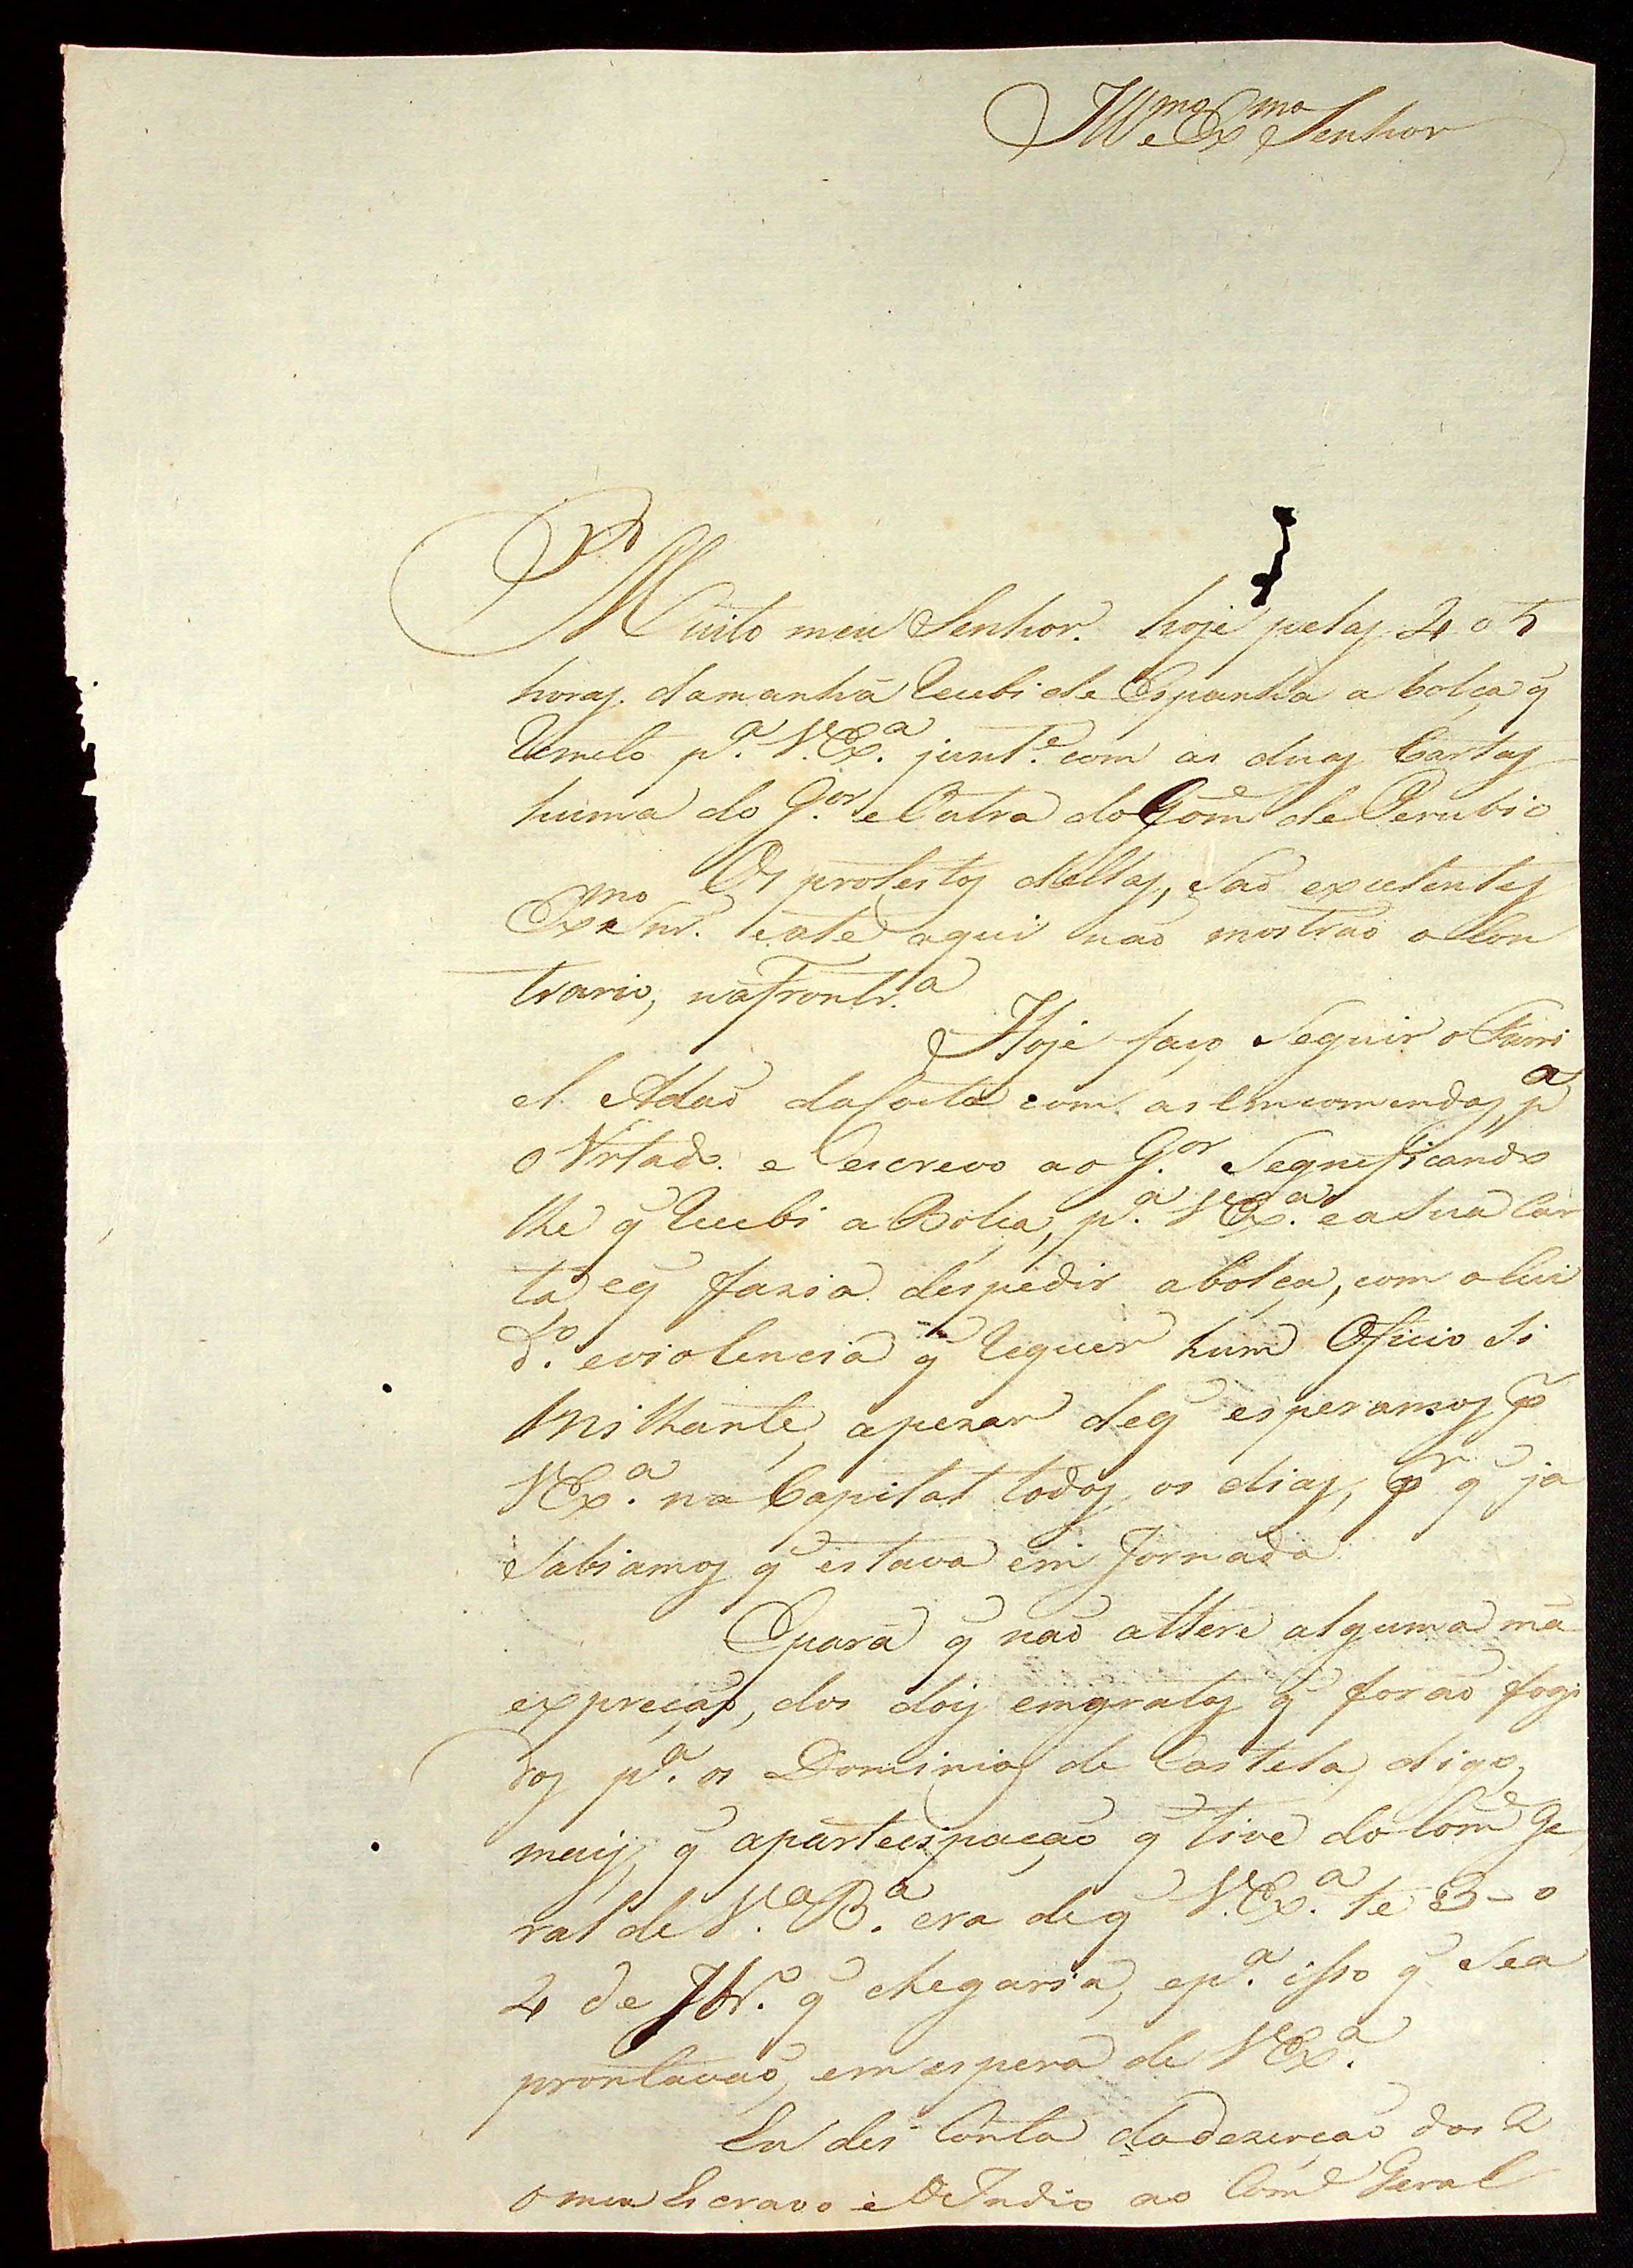 Illmo e Exmo Senhor
Muito meu Senhor. hoje pelas 4 o 5
horas. damanhã Recebi de Espanha a bolça q̃
Remeto pª. V.Exª. juntᵉ. com as duas Cartas
huma do Gᵒʳ. e Outra do Comᵉ de Serubio
Os protestos dellas, Saõ excelentes
Exmo Snr. e ate aqui naõ mostraõ o Con
trario, na Frontrª.
Hoje faço Seguir o Furri
el Adaõ da Costa com as Emcomendas, pª
o Vrtado. e Escrevo ao Gᵒʳ. Segneficando
lhe q̃ Recebi a Bolça, pª. VExª. e a Sua Car
ta, e q̃ fazia despedir a bolça, com o Cui
dº. e violencia q̃ Requer hum Oficio Si
milhante, apezar de q̃ esperamos pº
VExª. na Capital todos os dias, pʳ q̃ ja
Sabiamos q̃ estava em Jornada.
E para q̃ naõ altere alguma má
expreçaõ, dos dois emgratos q̃ foraõ fogi
dos pª. os Dominios de Castela, digo,
mais, q̃ apartecipaçaõ q̃ tive do Comᵉ Ge
ral de Vª. Bª. era de q̃ V.Exª. te 3 - o
4 de 7br. q̃ chegaria, e pª. isso q̃ Sea
prontavaõ, em espera de VExª.
Eu dei Conta da dezerçaõ dos 2
o meu Escravo e O Indio ao Comᵉ Geral